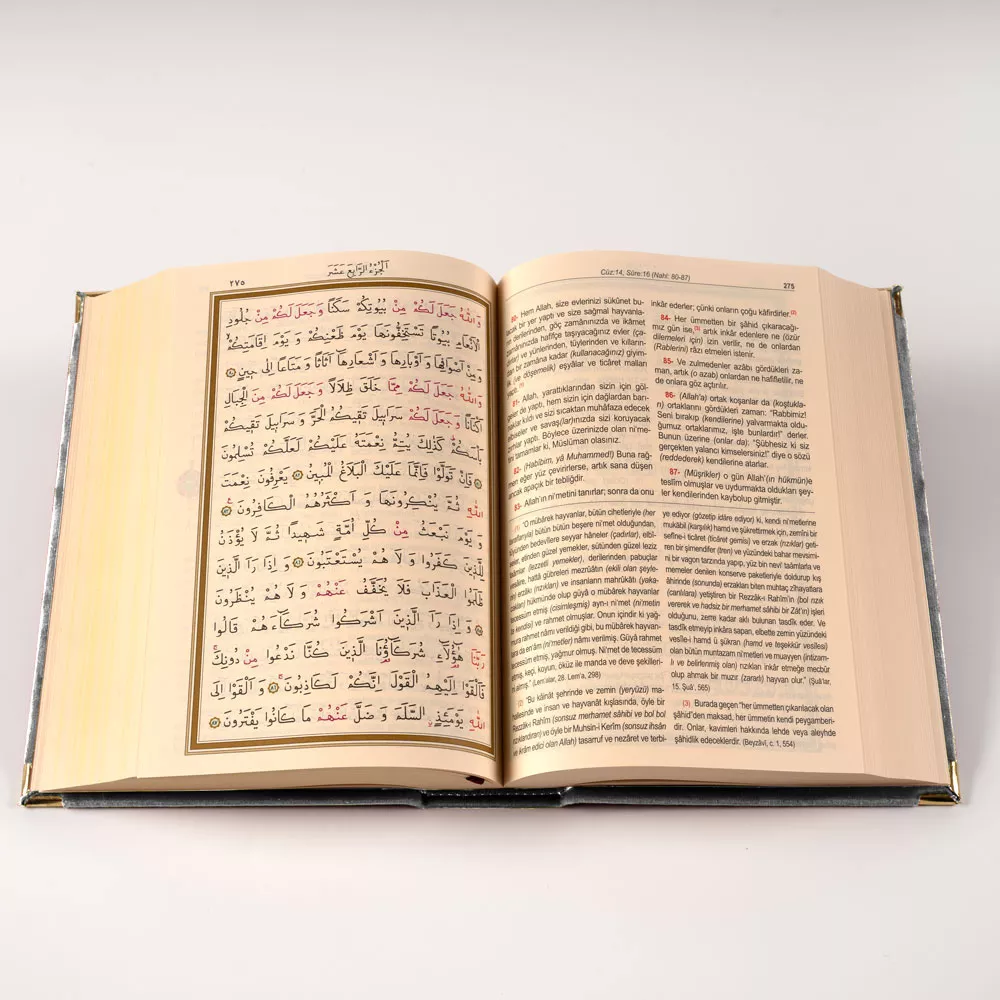 اَلْجُزْءُ الرَّابِعُ عَشَرَ
٢٧٥
وَاللّٰهُ جَعَلَ لَكُمْ مِنْ بُيُوتِكُمْ سَكَنًا وَجَعَلَ لَكُمْ مِنْ جُلُودِ
الْاَنْعَامِ بُيُوتًا تَسْتَخِفُّونَهَا يَوْمَ ظَعْنِكُمْ وَ يَوْمَ اِقَامَتِكُمْ
وَمِنْ اَصْوَافِهَا وَ اَوْبَارِهَا وَ اَشْعَارِهَا اَثَاثًا وَ مَتَاعًا اِلٰى حِينٍ ﴿٨٠﴾
وَاللّٰهُ جَعَلَ لَكُمْ مِمَّا خَلَقَ ظِلَالًا وَجَعَلَ لَكُمْ مِنَ الْجِبَالِ
اَكْنَانًا وَ جَعَلَ لَكُمْ سَرَابِيلَ تَقِيكُمُ الْحَرَّ وَ سَرَابِيلَ تَقِيكُمْ
بَأْسَكُمْ كَذٰلِكَ يُتِمُّ نِعْمَتَهُ عَلَيْكُمْ لَعَلَّكُمْ تُسْلِمُونَ
﴿٨١﴾ فَاِنْ تَوَلَّوْا فَاِنَّمَا عَلَيْكَ الْبَلَاغُ الْمُبِينُ ﴿٨٢﴾ يَعْرِفُونَ نِعْمَتَ
اللّٰهِ ثُمَّ يُنْكِرُونَهَا وَ اَكْثَرُهُمُ الْكَافِرُونَ ﴿٨٣﴾
وَ يَوْمَ نَبْعَثُ مِنْ كُلِّ اُمَّةٍ شَهِيدًا ثُمَّ لَا يُؤْذَنُ
لِلَّذِينَ كَفَرُوا وَ لَا هُمْ يُسْتَعْتَبُونَ ﴿٨٤﴾ وَ اِذَا رَاَ الَّذِينَ
ظَلَمُوا الْعَذَابَ فَلَا يُخَفَّفُ عَنْهُمْ وَ لَا هُمْ يُنْظَرُونَ
﴿٨٥﴾ وَ اِذَا رَاَ الَّذِينَ اَشْرَكُوا شُرَكَاءَهُمْ قَالُوا
رَبَّنَا هٰؤُلَاءِ شُرَكَاؤُنَا الَّذِينَ كُنَّا نَدْعُوا مِنْ دُونِكَ
فَاَلْقَوْا اِلَيْهِمُ الْقَوْلَ اِنَّكُمْ لَكَاذِبُونَ ﴿٨٦﴾ وَ اَلْقَوْا اِلَى
اللّٰهِ يَوْمَئِذٍ السَّلَمَ وَ ضَلَّ عَنْهُمْ مَا كَانُوا يَفْتَرُونَ ﴿٨٧﴾
Cüz:14, Sûre:16 (Nahl: 80-87)
275
80- Hem Allah, size evlerinizi sükûnet bu-
lacak bir yer yaptı ve size sağmal hayvanla-
rın derilerinden, göç zamanınızda ve ikâmet
zamanınızda hafifçe taşıyacağınız evler (ça-
dırlar) ve yünlerinden, tüylerinden ve kılların-
dan bir zamana kadar (kullanacağınız) giyim-
lik (ve döşemelik) eşyâlar ve ticâret malları
yaptı. (1)
81- Allah, yarattıklarından sizin için göl-
geler de yaptı, hem sizin için dağlardan barı-
naklar kıldı ve sizi sıcaktan muhâfaza edecek
elbiseler ve savaş(lar)ınızda sizi koruyacak
zırhlar yaptı. Böylece üzerinizde olan ni'me-
tini tamamlar ki, Müslüman olasınız.
82- (Habîbim, yâ Muhammed!) Buna rağ-
men eğer yüz çevirirlerse, artık sana düşen
ancak apaçık bir tebliğdir.
83- Allah'ın ni'metini tanırlar; sonra da onu
inkâr ederler; çünki onların çoğu kâfirdirler.(2)
84- Her ümmetten bir şâhid çıkaracağı-
mız gün ise,(3) artık inkâr edenlere ne (özür
dilemeleri için) izin verilir, ne de onlardan
(Rablerini) râzı etmeleri istenir.
85- Ve zulmedenler azâbı gördükleri za-
man, artık (o azab) onlardan ne hafifletilir, ne
de onlara göz açtırılır.
86- (Allah'a) ortak koşanlar da (koştukla-
rı) ortaklarını gördükleri zaman: "Rabbimiz!
Seni bırakıp (kendilerine) yalvarmakta oldu-
ğumuz ortaklarımız, işte bunlardır!" derler.
Bunun üzerine (onlar da): "Şübhesiz ki siz
gerçekten yalancı kimselersiniz!" diye o sözü
(reddederek) kendilerine atarlar.
87- (Müşrikler) o gün Allah'(ın hükmün)e
teslîm olmuşlar ve uydurmakta oldukları şey-
ler kendilerinden kaybolup gitmiştir.
(1) "O mübârek hayvanlar, bütün cihetleriyle (her
taraflarıyla) bütün bütün beşere ni'met olduğundan,
kılından bedevîlere seyyar hâneler (çadırlar), elbi-
seler, elinden güzel yemekler, sütünden güzel leziz
taâmlar (lezzetli yemekler), derilerinden pabuçlar
vesâire, hattâ gübreleri mezrûâtın (ekili olan şeyle-
rin) erzakı (rızıkları) ve insanların mahrûkātı (yaka-
cakları) hükmünde olup gûyâ o mübârek hayvanlar
tecessüm etmiş (cisimleşmiş) ayn-ı ni'met (ni'metin
tâ kendisi) ve rahmet olmuşlar. Onun içindir ki yağ-
mura rahmet nâmı verildiği gibi, bu mübârek hayvan-
lara da en'âm (ni'metler) nâmı verilmiş. Gûyâ rahmet
tecessüm etmiş, yağmur olmuş. Ni'met de tecessüm
etmiş, keçi, koyun, öküz ile manda ve deve şekilleri-
ni almış." (Lem'alar, 28. Lem'a, 298)
(2) "Bu kâinât şehrinde ve zemin (yeryüzü) ma-
hallesinde ve insan ve hayvanât kışlasında, öyle bir
Rezzâk-ı Rahîm (sonsuz merhamet sâhibi ve bol bol
rızıklandıran) ve öyle bir Muhsin-i Kerîm (sonsuz ihsân
ve ikrâm edici olan Allah) tasarruf ve nezâret ve terbi-
ye ediyor (gözetip idâre ediyor) ki, kendi ni'metlerine
mukābil (karşılık) hamd ve şükrettirmek için, zemîni bir
sefîne-i ticâret (ticâret gemisi) ve erzak (rızıklar) geti-
ren bir şimendifer (tren) ve yüzündeki bahar mevsimi-
ni bir vagon tarzında yapıp, yüz bin nevi' taâmlarla ve
memeler denilen konserve paketleriyle doldurup kış
âhirinde (sonunda) erzakları biten muhtaç zîhayatlara
(canlılara) yetiştiren bir Rezzâk-ı Rahîm'in (bol rızık
vererek ve hadsiz bir merhamet sâhibi bir Zât'ın) işleri
olduğunu, zerre kadar aklı bulunan tasdîk eder. Ve
tasdîk etmeyip inkâra sapan, elbette zemin yüzündeki
vesîle-i hamd ü şükrân (hamd ve teşekkür vesîlesi)
olan bütün muntazam ni'metleri ve muayyen (intizam-
lı ve belirlenmiş olan) rızıkları inkâr etmeğe mecbûr
olup ahmak bir muzır (zararlı) hayvan olur." (Şuâ'lar,
15. Şuâ', 565)
(3) Burada geçen "her ümmetten çıkarılacak olan
şâhid"den maksad, her ümmetin kendi peygamberi-
dir. Onlar, kavimleri hakkında lehde veya aleyhde
şâhidlik edeceklerdir. (Beyzâvî, c. 1, 554)